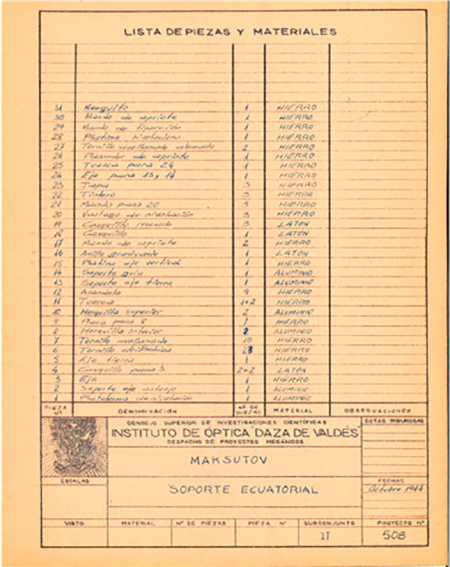 LISTA DE PIEZAS Y MATERIALES
31 Manguito 1 HIERRO
30 Mando de apriete 1 HIERRO
29 Mando de 1 HIERRO
28 Platina 1 HIERRO
27 Tornillo 2 HIERRO
26 de apriete 1 HIERRO
25 Tuerca para 24 1 HIERRO
24 Eje para 13 y 14 1 HIERRO
23 Tapa 3 HIERRO
22 3 HIERRO
21 Mando para 20 3 HIERRO
20 Vastago de nivelación 3 HIERRO
19 Casquillo roscado 3 LATON
18 Casquillo 1 LATON
17 Mando de apriete 2 HIERRO
16 Anillo graduado 1 LATON
15 Platina eje vertical 1 HIERRO
14 Soporte guia 1 ALUMINIO
13 Soporte eje 1 ALUMINIO
12 Arandela 9 HIERRO
11 Tuerca 1+2 HIERRO
10 Horquilla superior 2 ALUMINIO
9 para 8 1 HIERRO
8 Horquilla inferior 2 ALUMINIO
7 Tornillo 10 HIERRO
6 Tornillo HIERRO
5 Eje 1 HIERRO
4 Casquillo para 3 2+2 LATON
3 Eje 1 HIERRO
2 Soporte eje 1 ALUMINIO
1 Plataforma de nivelación 1 ALUMINIO
PIEZA Nº DENOMINACIÓN Nº DE PIEZAS MATERIAL OBSERVACIONES
CONSEJO SUPERIOR DE INVESTIGACIONES CIENTÍFICAS
INSTITUTO DE ÓPTICA "DAZA DE VALDÉS"
DESPACHO DE PROYECTOS MECÁNICOS
COTAS
MAKSUTOV
ESCALAS
SOPORTE ECUATORIAL
FECHAS
Octubre
VISTO MATERIAL Nº DE PIEZAS PIEZA Nº SUBCONJUNTO PROYECTO Nº
II 508